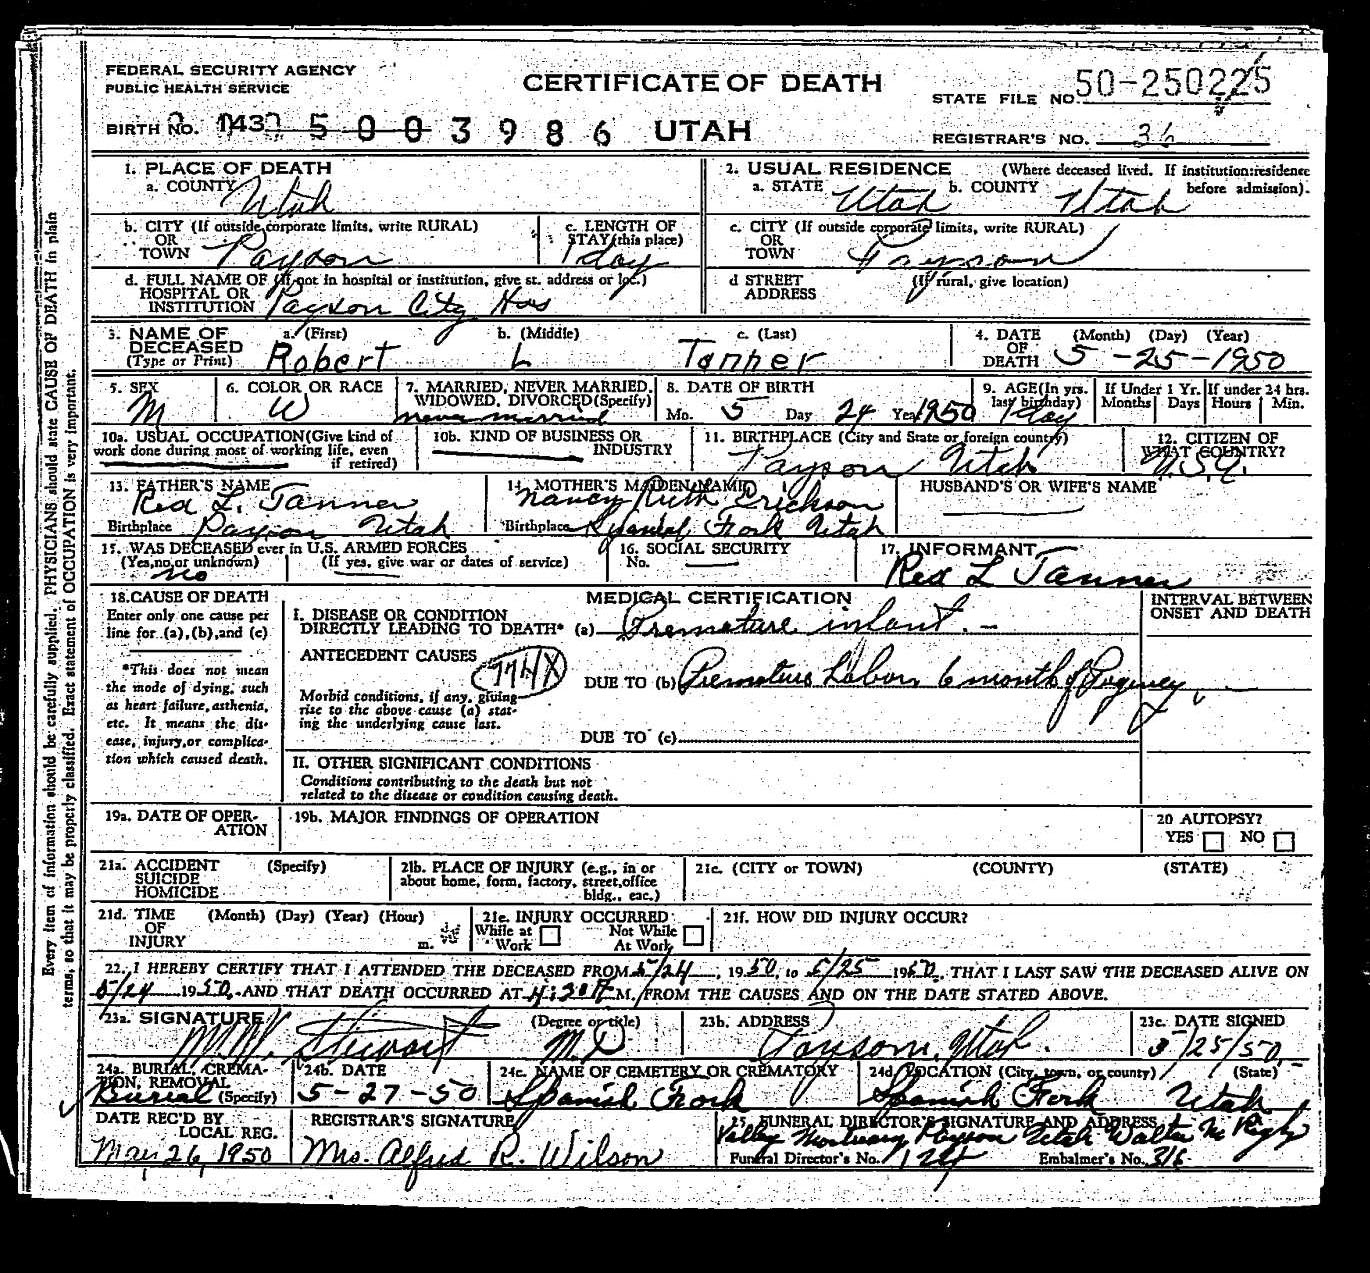 FEDERAL SECURITY AGENCY
PUBLIC HEALTH SERVICE
CERTIFICATE OF DEATH
STATE FILE NO. 50-250225
BIRTH NO. 143 5003986 UTAH
REGISTRAR'S NO. 36
1. PLACE OF DEATH
a. COUNTY Utah
2. USUAL RESIDENCE (Where deceased lived. If institution: residence before admission).
a. STATE Utah b. COUNTY Utah
b. CITY (If outside corporate limits, write RURAL)
OR
TOWN Payson
c. LENGTH OF
STAY (this place)
1 day
c. CITY (If outside corporate limits, write RURAL)
OR
TOWN Payson
d. FULL NAME OF (If not in hospital or institution, give st. address or loc.)
HOSPITAL OR
INSTITUTION Payson City Hos
d STREET (If rural, give location)
ADDRESS
3. NAME OF a. (First) b. (Middle) c. (Last)
DECEASED
(Type or Print) Robert L Tanner
4. DATE (Month) (Day) (Year)
OF
DEATH 5-25-1950
5. SEX
M
6. COLOR OR RACE
W
7. MARRIED, NEVER MARRIED,
WIDOWED, DIVORCED (Specify)
never married
8. DATE OF BIRTH
Mo. 5 Day 24 Year 1950
9. AGE (In yrs.
last birthday)
1 day
If Under 1 Yr.
Months Days
If under 24 hrs.
Hours Min.
10a. USUAL OCCUPATION (Give kind of
work done during most of working life, even
if retired)
10b. KIND OF BUSINESS OR
INDUSTRY
11. BIRTHPLACE (City and State or foreign country)
Payson Utah
12. CITIZEN OF
WHAT COUNTRY?
U.S.A.
13. FATHER'S NAME
Rex L. Tanner
Birthplace Payson Utah
14. MOTHER'S MAIDEN NAME
Nancy Ruth Erickson
Birthplace Spanish Fork Utah
HUSBAND'S OR WIFE'S NAME
15. WAS DECEASED ever in U.S. ARMED FORCES
(Yes, no, or unknown) (If yes, give war or dates of service)
no
16. SOCIAL SECURITY
No.
17. INFORMANT
Rex L Tanner
18. CAUSE OF DEATH
Enter only one cause per
line for (a), (b), and (c)
*This does not mean
the mode of dying, such
as heart failure, asthenia,
etc. It means the dis-
ease, injury, or complica-
tion which caused death.
MEDICAL CERTIFICATION
INTERVAL BETWEEN
ONSET AND DEATH
I. DISEASE OR CONDITION
DIRECTLY LEADING TO DEATH* (a) Premature infant. -
ANTECEDENT CAUSES
Morbid conditions, if any, giving
rise to the above cause (a) stat-
ing the underlying cause last.
DUE TO (b) Premature Labor, 6 month of
DUE TO (c)
II. OTHER SIGNIFICANT CONDITIONS
Conditions contributing to the death but not
related to the disease or condition causing death.
19a. DATE OF OPER-
ATION
19b. MAJOR FINDINGS OF OPERATION
20 AUTOPSY?
YES NO
21a. ACCIDENT (Specify)
SUICIDE
HOMICIDE
21b. PLACE OF INJURY (e.g., in or
about home, form, factory, street, office
bldg., eac.)
21c. (CITY or TOWN) (COUNTY) (STATE)
21d. TIME (Month) (Day) (Year) (Hour)
OF
INJURY m.
21e. INJURY OCCURRED
While at Not While
Work At Work
21f. HOW DID INJURY OCCUR?
22. I HEREBY CERTIFY THAT I ATTENDED THE DECEASED FROM 5/24, 1950, to 5/25 1950, THAT I LAST SAW THE DECEASED ALIVE ON
5/24 1950, AND THAT DEATH OCCURRED AT 4:30 A M. FROM THE CAUSES AND ON THE DATE STATED ABOVE.
23a. SIGNATURE (Degree or title)
Stewart M.D
23b. ADDRESS
Payson, Utah.
23c. DATE SIGNED
5/25/50
24a. BURIAL, CREMA-
TION, REMOVAL
Burial (Specify)
24b. DATE
5-27-50
24c. NAME OF CEMETERY OR CREMATORY
Spanish Fork
24d. LOCATION (City, town, or county) (State)
Spanish Fork Utah
DATE REC'D BY
LOCAL REG.
May 26, 1950
REGISTRAR'S SIGNATURE
Mrs. Alfred R. Wilson
25. FUNERAL DIRECTOR'S SIGNATURE AND ADDRESS
Valley Mortuary Payson Utah Walter M Rigby
Funeral Director's No. 124 Embalmer's No. 316
Every item of information should be carefully supplied. PHYSICIANS should state CAUSE OF DEATH in plain
terms, so that it may be properly classified. Exact statement of OCCUPATION is very important.